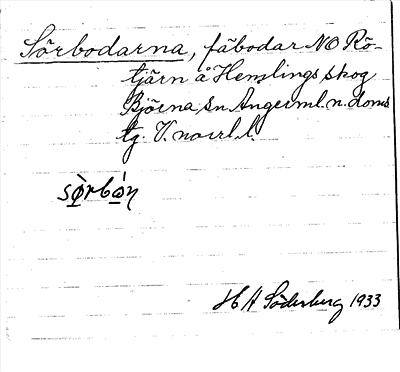 Sörbodarna, fäbodar NO Rö-
tjärn å Hemlings skog
Björna sn Ångerml. n. doms
tg. V. norrl. l.
sörbón
H A Söderberg 1933